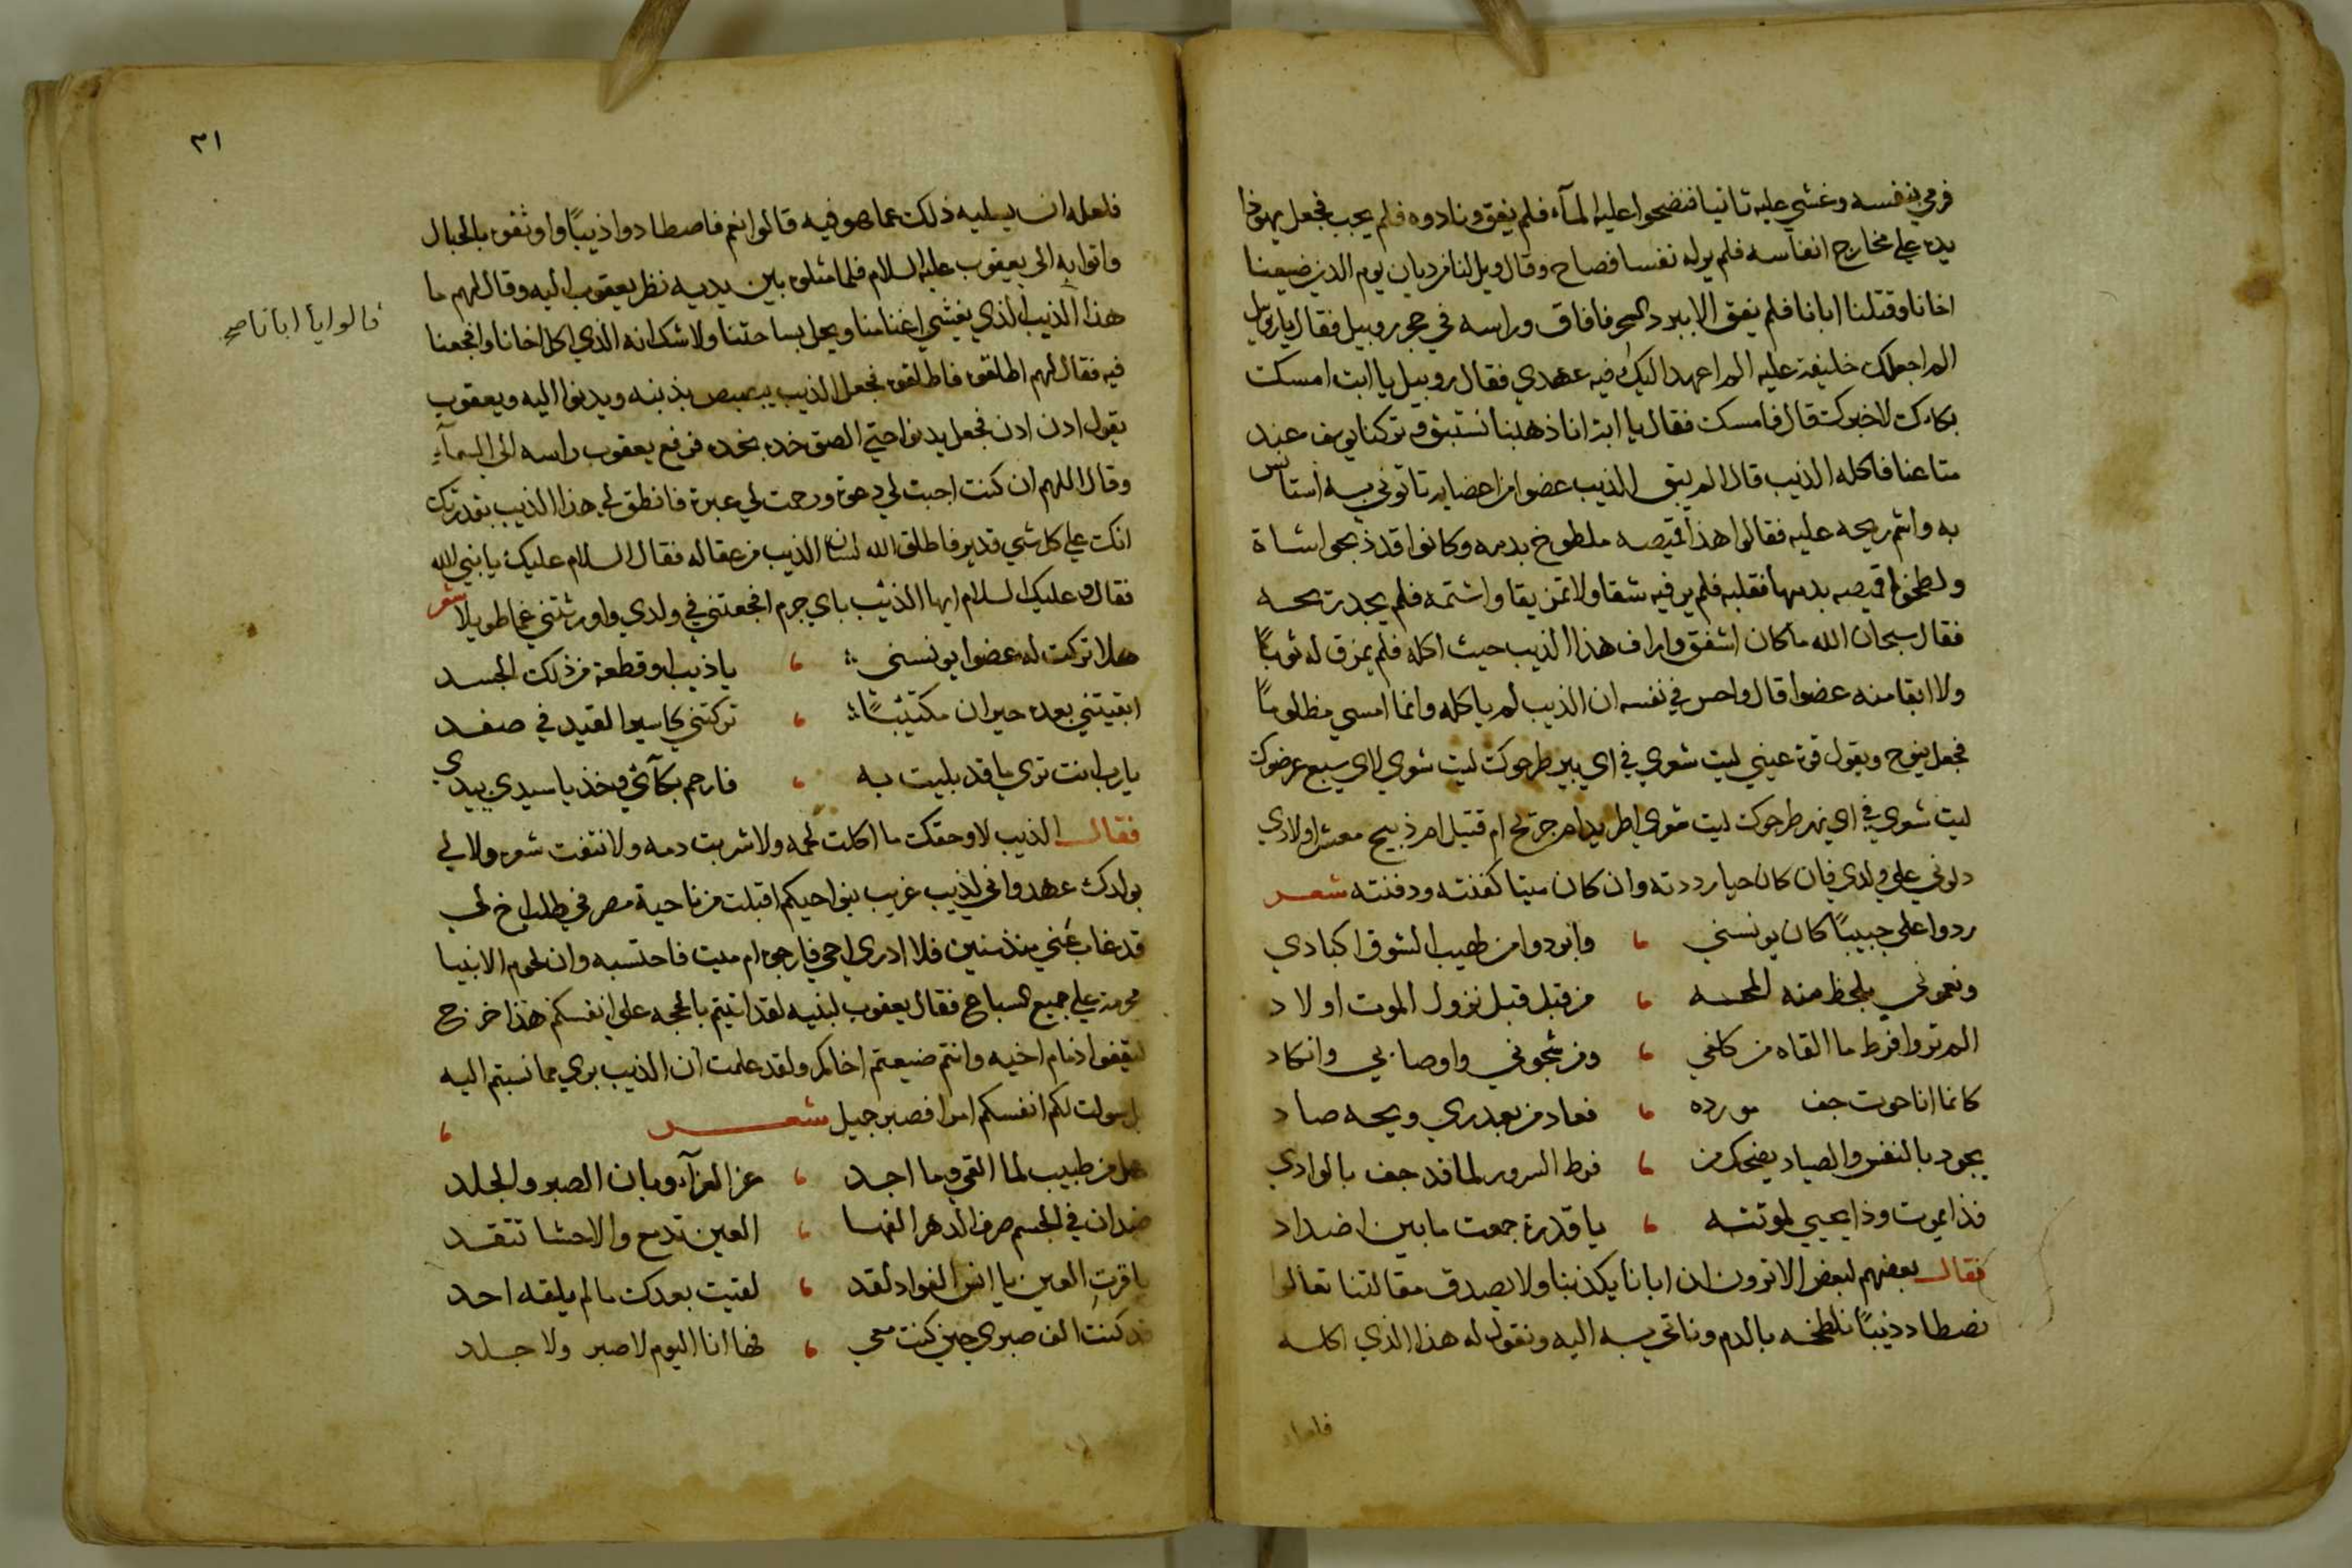 فرمي بنفسه وغشي عليه ثانيا فنضحوا عليه المآء فلم يفق ونادوه فلم يجب فجعل يهوذا
يده علي مخارج انفاسه فلم ير له نفسا فصاح وقال ويل لنا من ديان يوم الدين ضيعنا
اخانا وقتلنا ابانا فلم يفق الا ببرد السحر فافاق وراسه في حجر روبيل فقال يا روبيل
الم اجعلك خليفة عليه الم اعهد اليك فيه عهدي فقال روبيل يا ابت امسك
بكاءك لاخبرك قال فامسك فقال يا ابت انا ذهبنا نستبق وتركنا يوسف عند
متاعنا فاكله الذيب قال الم يبق الذيب عضوا من اعضايه تاتوني به استانس
به واشم ريحه عليه فقالوا هذا قميصه ملطوخ بدمه وكانوا قد ذبحوا شاة
ولطخوا قميصه بدمها فقلبه فلم ير فيه شقا ولا تمزيقا واشتمه فلم يجد ريحه
فقال سبحان الله ما كان اشفق واراف هذا الذيب حيث اكله فلم يمزق له ثوبًا
ولا ابقا منه عضوا قال واحس في نفسه ان الذيب لم ياكله وانما امسي مظلومًا
فجعل ينوح ويقول قرة عيني ليت شعري في اي بير طرحوك ليت شعري لاي سبع عرضوك
ليت شعري في اي نهر طرحوك ليت شعري اطريدا م جريح ام قتيل ام ذبيح معشر اولادي
دلوني علي ولدي فان كان حيا رددته وان كان ميتا كفنته ودفنته شعر
ردوا علي حبيبًا كان يونسني ، وابردوا من لهيب الشوق اكبادي
ونعموني بلحظ منه المحه ، من قبل قبل نزول الموت اولاد
الم تروا فرط ما القاه من كلفي ، ومن شجوني واوصابي وانكاد
كانما انا حوت جف مورده ، فعاد من بعد ري ويحه صاد
يجود بالنفس والصياد يضحك من ، فرط السرور لما قد جف بالوادي
فذا يموت وذا يحيي لموتته ، يا قدرة جمعت ما بين اضداد
فقال بعضهم لبعض الا ترون ان ابانا يكذبنا ولا يصدق مقالتنا تعالوا
نصطاد ذئبًا نلطخه بالدم وناتي به اليه ونقول له هذا الذي اكله
٣١
فلعله ان يسليه ذلك عما هو فيه قالوا نعم فاصطادوا ذيبًا واوثقوه بالحبال
واتوا به الي يعقوب عليه السلام فلما مثلوه بين يديه نظر يعقوب اليه وقال لهم ما
هذا الذيب الذي يغشي اغنامنا ويحل بساحتنا ولا شك انه الذي اكل اخانا وافجعنا
قالوا يا ابانا صح
فيه فقال لهم اطلقوه فاطلقوه فجعل الذيب يبصبص بذنبه ويدنوا اليه ويعقوب
يقول ادن ادن فجعل يدنوا حتي الصق خده بخده فرفع يعقوب راسه الي السمآء
وقال اللهم ان كنت اجبت لي دعوة ورحمت لي عبرة فانطق لي هذا الذيب بقدرتك
انك علي كل شي قدير فاطلق الله لسان الذيب من عقاله فقال السلام عليك يا نبي الله
فقال وعليك السلام ايها الذئب باي جرم افجعتني في ولدي واورثتني غما طويلا شعر
هلا تركت له عضوا يونسني ، يا ذيب او قطعة من ذلك الجسد
ابقيتني بعده حيران مكتئبًا ، تركتني كاسير القيد في صفد
يا رب انت تري ما قد بليت به ، فارحم بكآئي وخذ يا سيدي بيدي
فقال الذيب لا وحقك ما اكلت لحمه ولا شربت دمه ولا نتفت شعره ولا لي
بولدك عهد واني لذيب غريب بنواحيكم اقبلت من ناحية مصر في طلب اخ لي
قد غاب عني منذ سنين فلا ادري احي فارجوه ام ميت فاحتسبه وان لحوم الانبيا
محرمة علي جميع السباع فقال يعقوب لبنيه لقد اتيتم بالحجه علي انفسكم هذا خرج
ليقفوا ذمام اخيه وانتم ضيعتم اخاكم ولقد علمت ان الذيب بري مما نسبتم اليه
بل سولت لكم انفسكم امرا فصبر جميل شعر ،
هل من طبيب لما القي وما اجد ، عز العزآء وبان الصبر والجلد
ضدان في الجسم صرف الدهر الفهما ، العين تدمع والاحشا تتقد
يا قرت العين يا انس الفواد لقد ، لقيت بعدك ما لم يلقه احد
قد كنت الف صبري حين كنت معي ، فها انا اليوم لا صبر ولا جلد